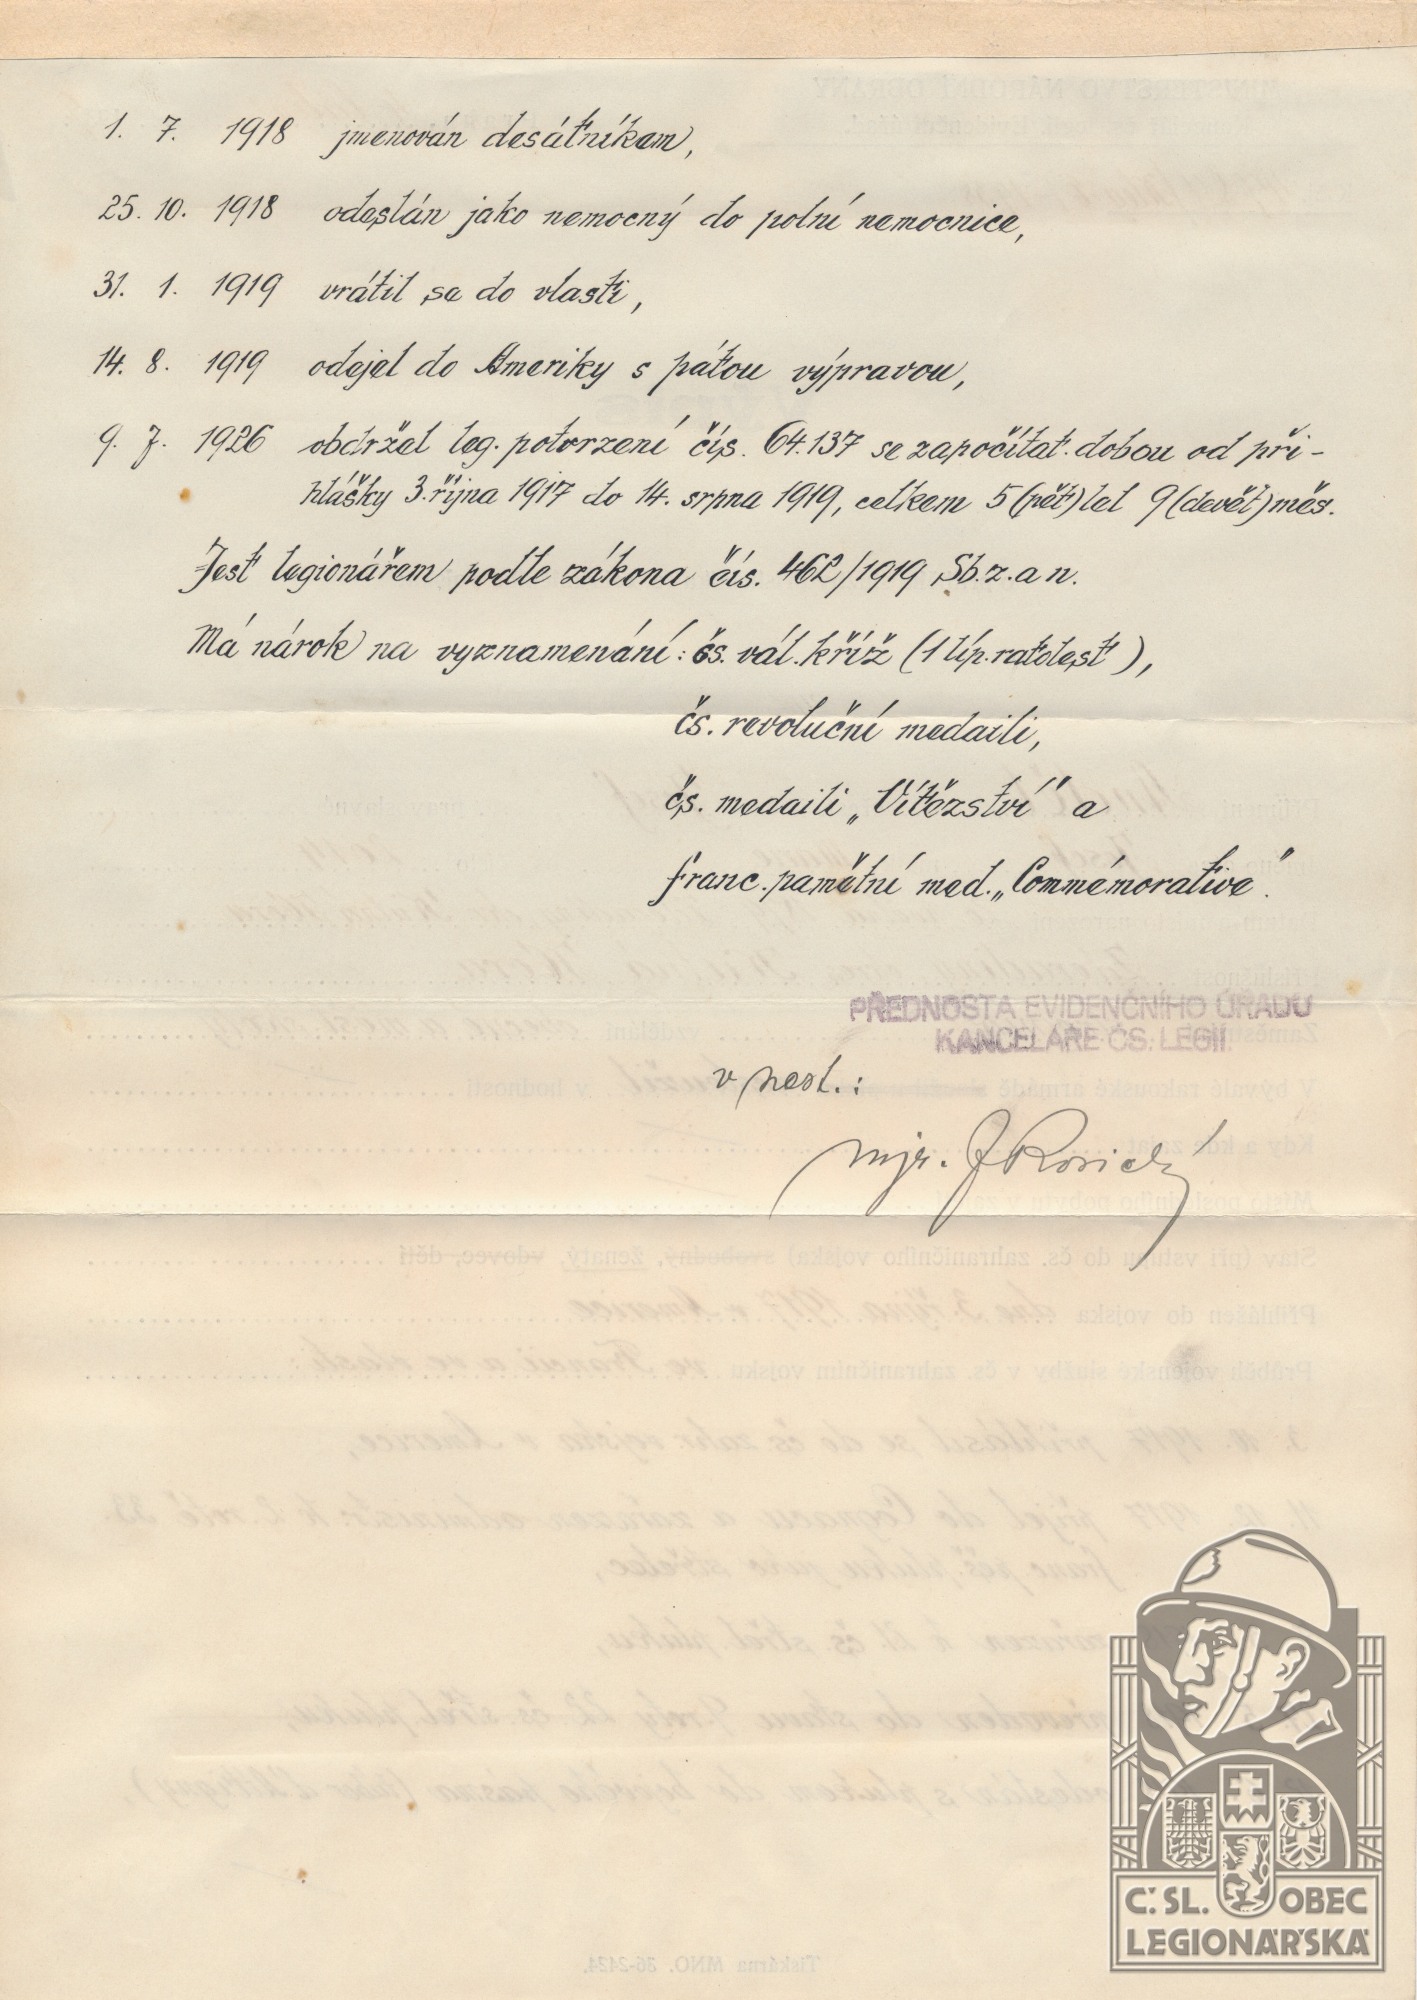 1. 7. 1918 jmenován desátníkem,
25. 10. 1918 odeslán jako nemocný do polní nemocnice,
31. 1. 1919 vrátil se do vlasti,
14. 8. 1919 odejel do Ameriky s pátou výpravou,
9. 7. 1926 obdržel leg. potvrzení čís. 64.137 se započítat. dobou od při-
hlášky 3. října 1917 do 14. srpna 1919, celkem 5 (pět) let 9 (devět) měs.
Jest legionářem podle zákona čís. 462/1919 Sb. z. a n.
Má nárok na vyznamenání: čs. vál. kříž (1 líp. ratolest),
čs. revoluční medaili,
čs. medaili „Vítězství" a
franc. pamětní med. „Commémorative".
PŘEDNOSTA EVIDENČNÍHO ÚŘADU
KANCELÁŘE ČS. LEGIÍ.
v zast.:
mjr. J Rosický
Č.SL. OBEC
LEGIONÁŘSKÁ